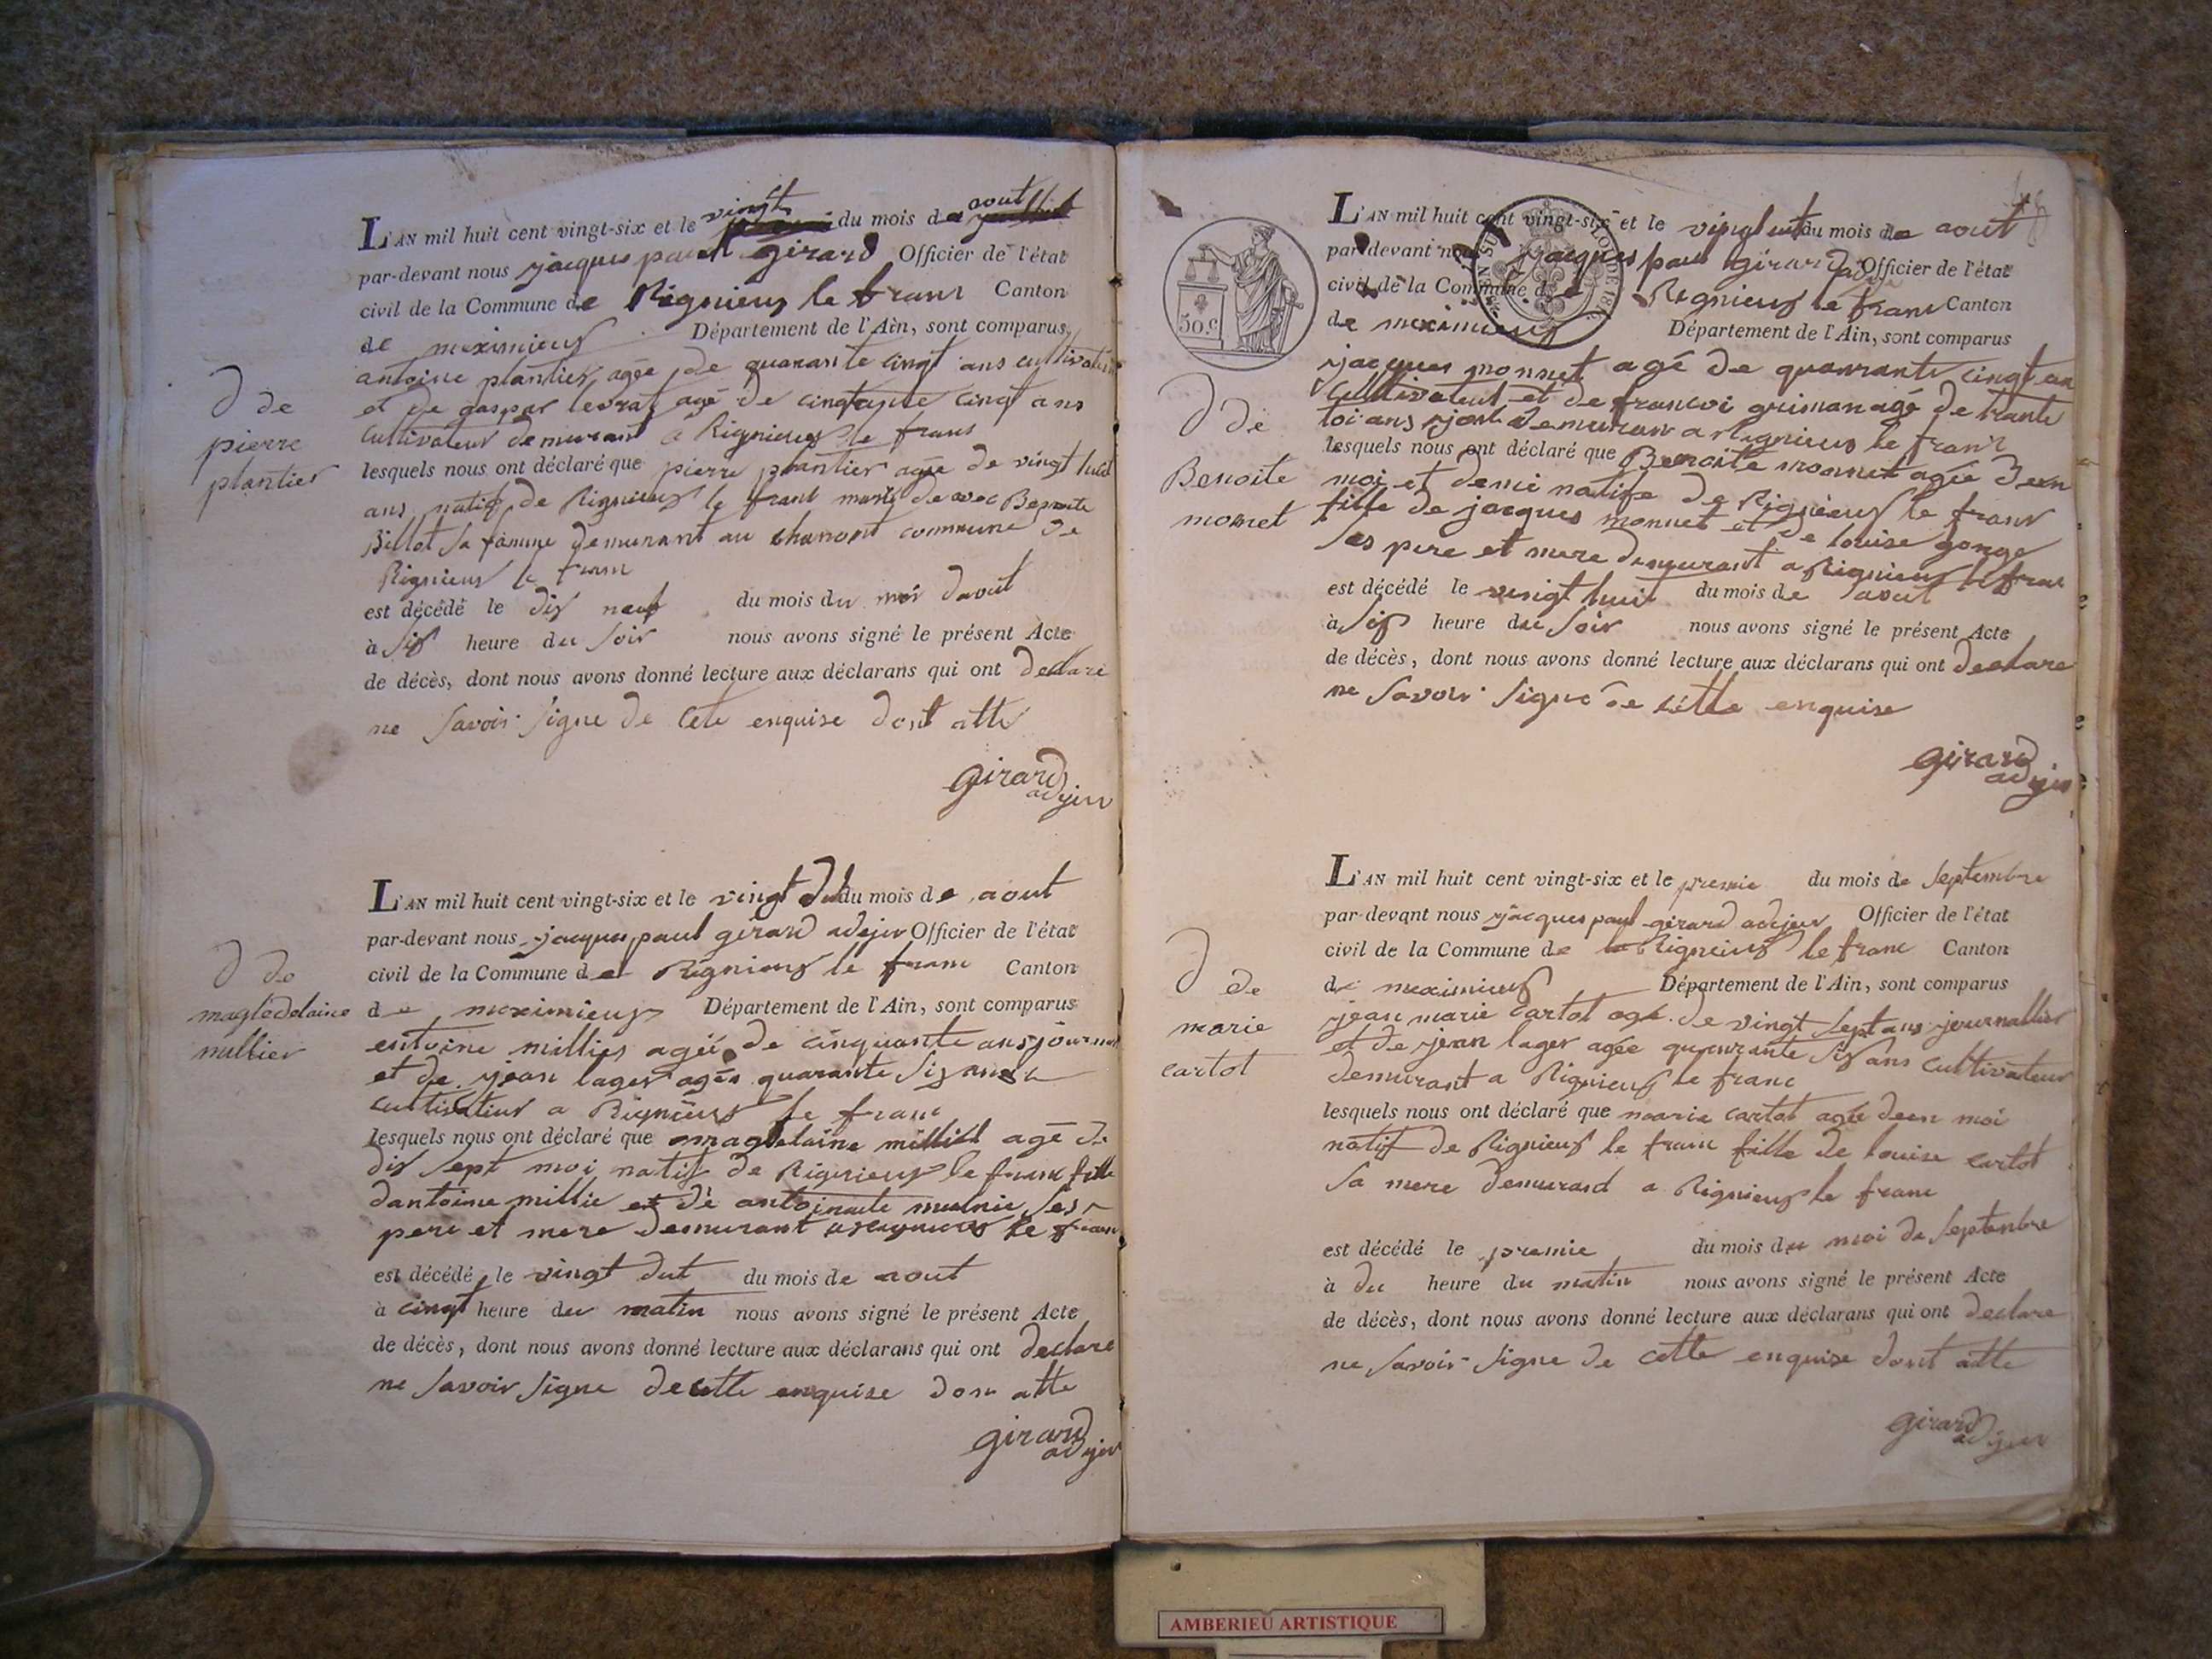 L'AN mil huit cent vingt-six et le vingt du mois de aout
par-devant nous jacques paul girard Officier de l'état
civil de la Commune de Rignieux le franc Canton
de meximieux Département de l'Ain, sont comparus
antoine plantier agée de quarante cinqt ans cultivateur
et de gaspar levrat agé de cinqtante cinqt ans
cultivateur demurant a Rignieux le franc
D de
pierre
plantier
lesquels nous ont déclaré que pierre plantier agée de vingt huit
ans natif de Rignieux le franc marié de avec Benoite
Billot sa famme demurant au chanont commune de
Rignieux le franc
est décédé le dix neuf du mois du moi daout
à six heure du soir nous avons signé le présent Acte
de décès, dont nous avons donné lecture aux déclarans qui ont declare
ne savoir signe de cete enquise dont atte
girard
adjeu
L'AN mil huit cent vingt-six et le vingt dut du mois de aout
par-devant nous jacques paul girard adejeu Officier de l'état
civil de la Commune de Rignieux le franc Canton
de meximieux Département de l'Ain, sont comparus
entoine millier agée de cinquante ans journal
et de jean lager agée quarante six ans
cultivateur a Rignieux le franc
D de
magledelaine
millier
lesquels nous ont déclaré que magdelaine millier agé de
dix sept moi natif de Rignieux le franc fille
dantoine millie et de antoinaite mulnie ses
pere et mere demurant a rignieux le franc
est décédé le vingt dut du mois de aout
à cinqt heure du matin nous avons signé le présent Acte
de décès, dont nous avons donné lecture aux déclarans qui ont declare
ne savoir signe de cette enquise don atte
girard
adejeu
50.c
L'AN mil huit cent vingt-six et le vingt uit du mois de aout
par-devant nous jacques paul girard Officier de l'état
civil de la Commune de Rignieux le franc Canton
de meximieux Département de l'Ain, sont comparus
jacques monnet agé de quarante cinqt an
cultivateur et de francoi griman agé de trante
toi ans demuran a Rignieux le franc
D de
Benoite
monnet
lesquels nous ont déclaré que Benoite monnet agée deen
moi et demi natife de Rignieux le franc
fille de jacques monnet et de louise gonge
ses pere et mere demurant a Rignieux le franc
est décédé le vingt huit du mois de aout
à six heure du soir nous avons signé le présent Acte
de décès, dont nous avons donné lecture aux déclarans qui ont declare
ne savoir signe de cette enquise
girard
adejeu
L'AN mil huit cent vingt-six et le premie du mois de septembre
par-devant nous jacques paul girard adejeu Officier de l'état
civil de la Commune de Rignieux le franc Canton
de meximieux Département de l'Ain, sont comparus
jean marie cartot agé de vingt sept ans journallier
et de jean lager agée quarante six ans cultivateur
demurant a Rignieux le franc
D de
marie
cartot
lesquels nous ont déclaré que marie cartot agée deen moi
natif de Rignieux le franc fille de louise cartot
sa mere demurand a Rignieux le franc
est décédé le premie du mois du moi de septenbre
à du heure du matin nous avons signé le présent Acte
de décès, dont nous avons donné lecture aux déclarans qui ont declare
ne savoir signe de cette enquise dont atte
girard
adejeu
AMBERIEU ARTISTIQUE